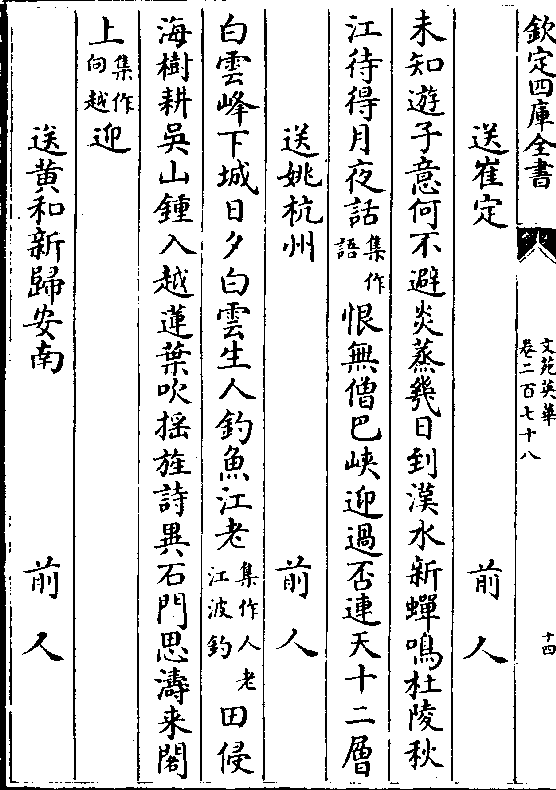 欽定四庫全書
文苑英華
卷二百七十八
十四
送崔定 前人
未知遊子意何不避炎蒸幾日到漢水新蟬鳴杜陵秋
江待得月夜話集作語恨無僧巴峽迎過否連天十二層
送姚杭州 前人
白雲峰下城日夕白雲生人釣魚江老集作人老江波釣田侵
海樹耕吳山鍾入越蓮葉吹揺旌詩異石門思濤来閣
上集作向越迎
送黄和新歸安南 前人